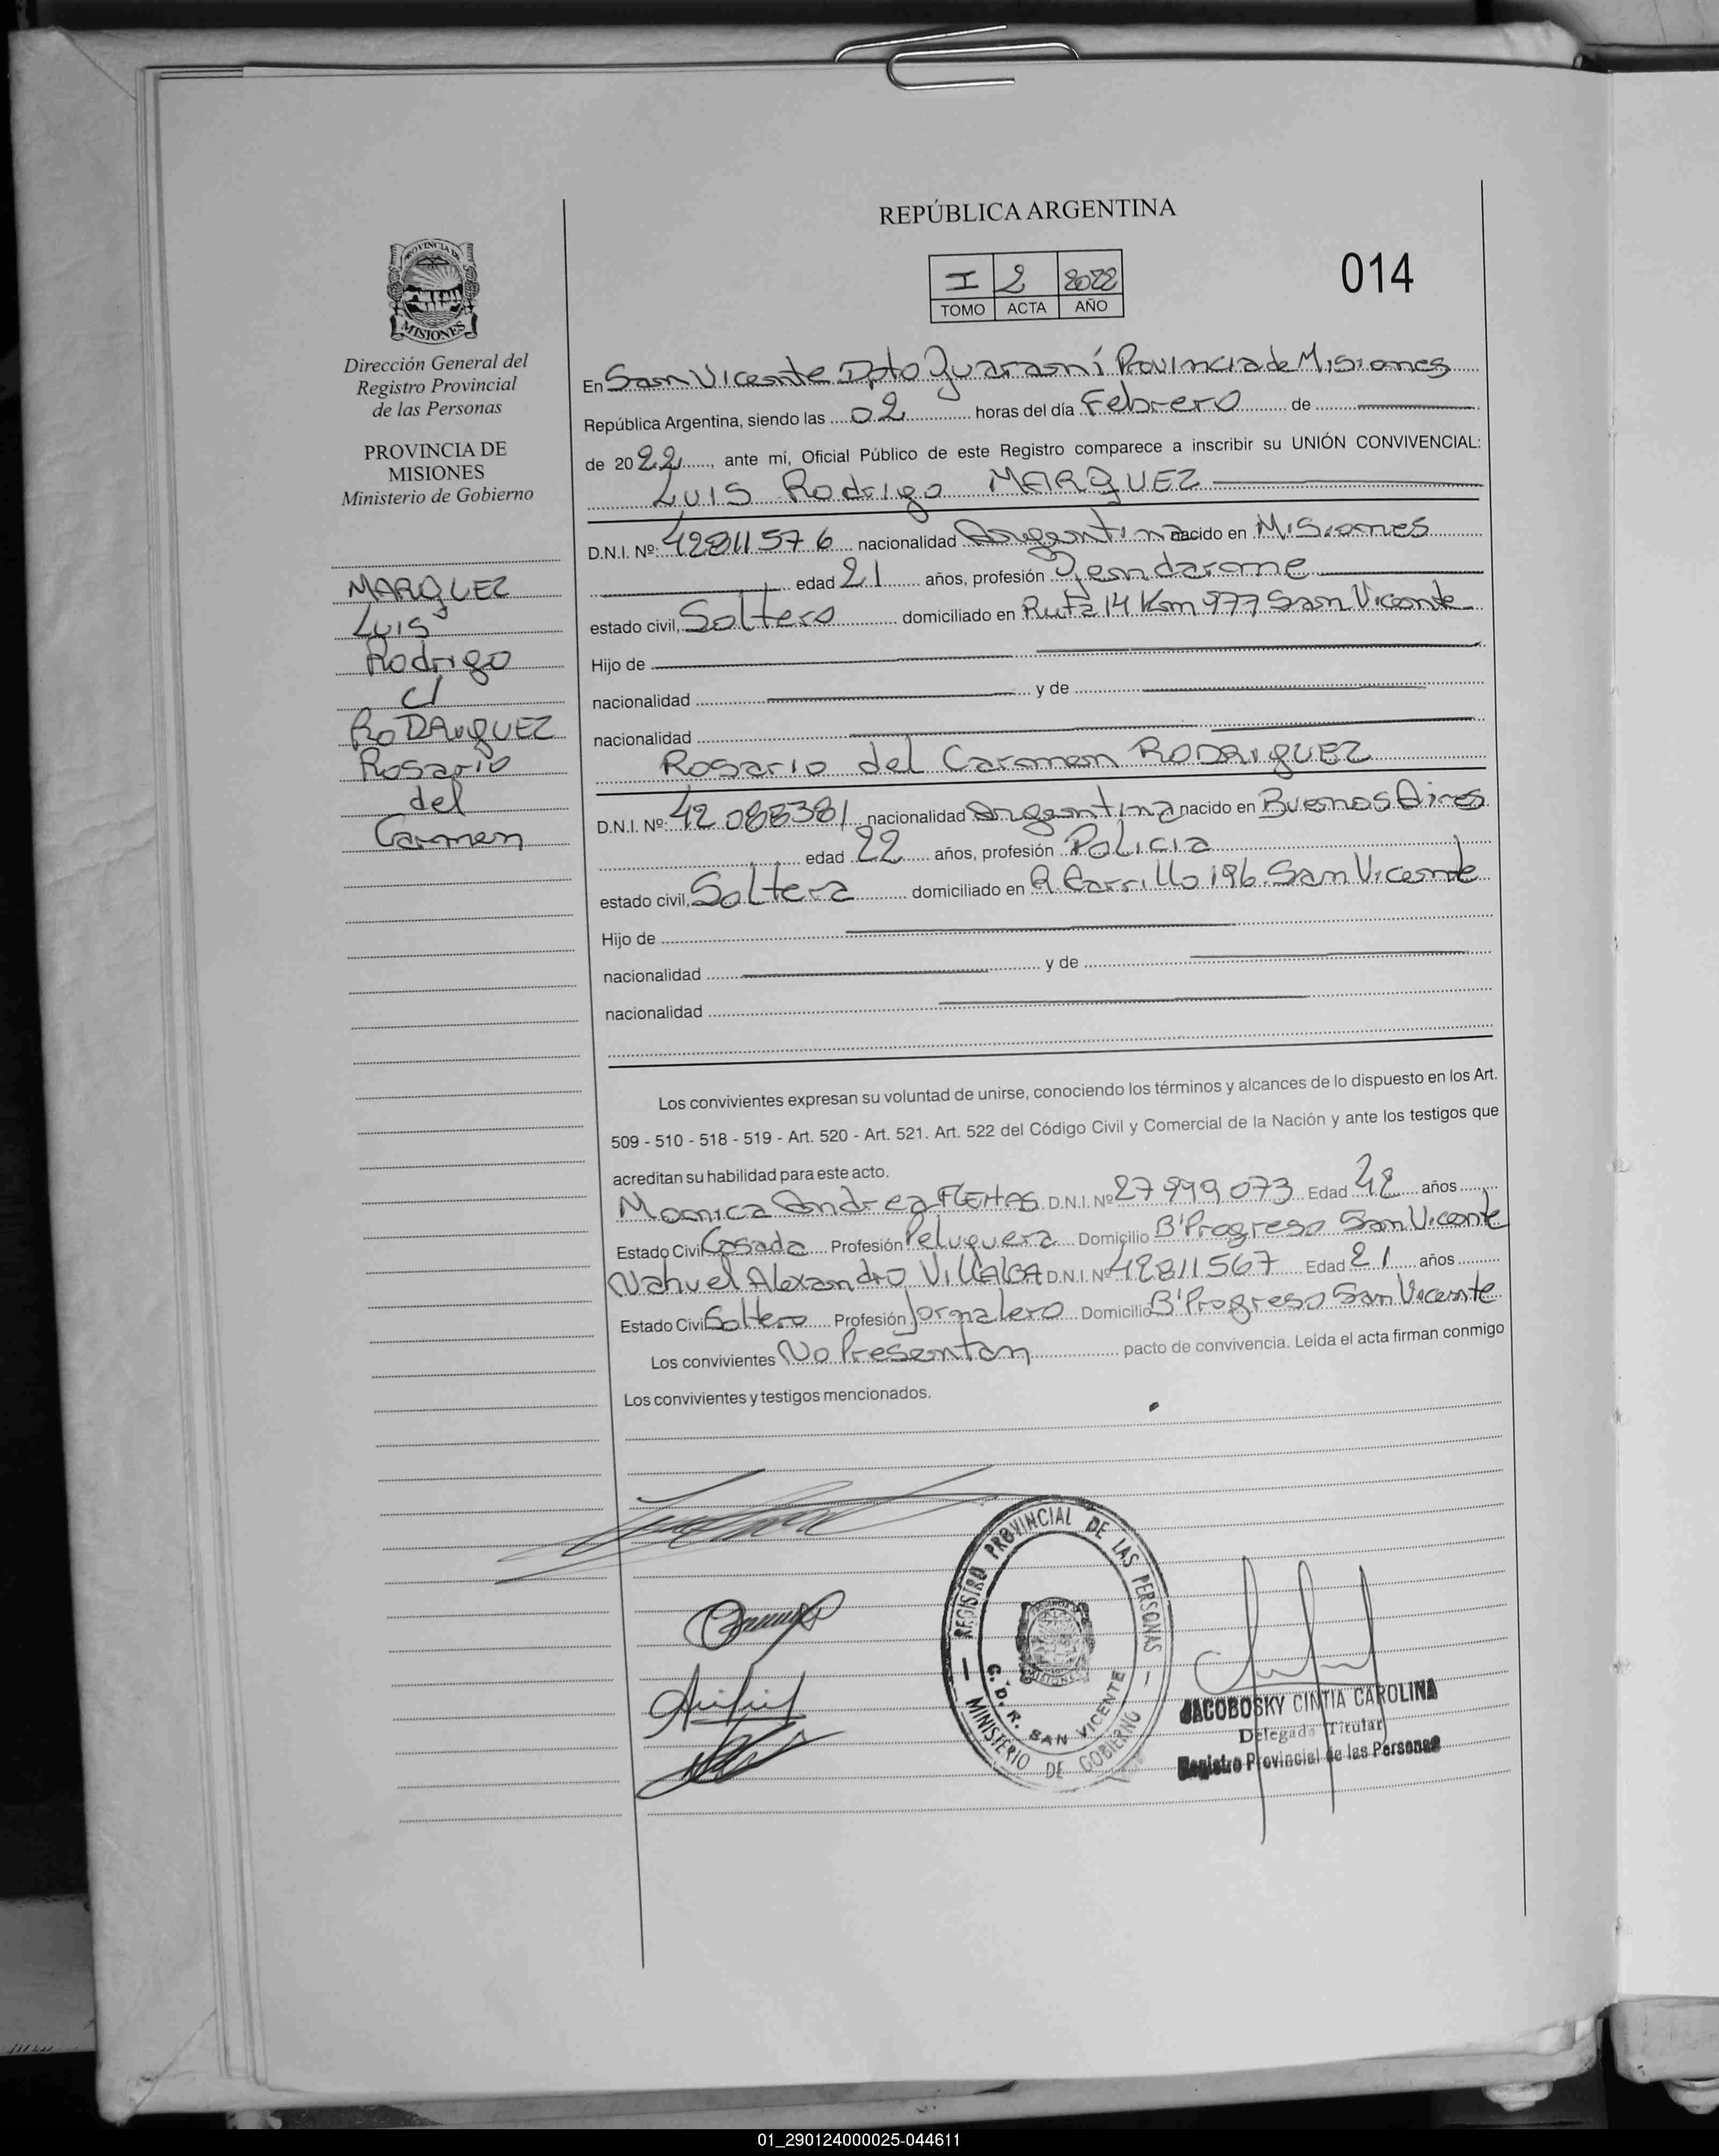 REPÚBLICA ARGENTINA
I 2 2022
TOMO ACTA AÑO
014
PROVINCIA DE
MISIONES
Dirección General del
Registro Provincial
de las Personas
PROVINCIA DE
MISIONES
Ministerio de Gobierno
MARQUEZ
Luis
Rodrigo
c/
RODRIGUEZ
Rosario
del
Carmen
En San Vicente Dpto Guaraní Provincia de Misiones
República Argentina, siendo las 02 horas del día Febrero de
de 2022, ante mí, Oficial Público de este Registro comparece a inscribir su UNIÓN CONVIVENCIAL:
Luis Rodrigo MARQUEZ
D.N.I. Nº: 42811576 nacionalidad Argentina nacido en Misiones
edad 21 años, profesión Gendarme
estado civil, Soltero domiciliado en Ruta 14 Km 977 San Vicente
Hijo de
nacionalidad y de
nacionalidad
Rosario del Carmen RODRIGUEZ
D.N.I. Nº: 42088381 nacionalidad Argentina nacido en Buenos Aires
edad 22 años, profesión Policia
estado civil, Soltera domiciliado en R. Carrillo 196 San Vicente
Hijo de
nacionalidad y de
nacionalidad
Los convivientes expresan su voluntad de unirse, conociendo los términos y alcances de lo dispuesto en los Art.
509 - 510 - 518 - 519 - Art. 520 - Art. 521. Art. 522 del Código Civil y Comercial de la Nación y ante los testigos que
acreditan su habilidad para este acto.
Monica Andrea FLEITAS D.N.I. Nº 27949073 Edad 42 años
Estado Civil Casada Profesión Peluquera Domicilio B' Progreso San Vicente
Nahuel Alexandro VILLALBA D.N.I. Nº 42811567 Edad 21 años
Estado Civil Soltero Profesión Jornalero Domicilio B' Progreso San Vicente
Los convivientes No Presentan pacto de convivencia. Leída el acta firman conmigo
Los convivientes y testigos mencionados.
REGISTRO PROVINCIAL DE LAS PERSONAS
C. D. R. SAN VICENTE
MINISTERIO DE GOBIERNO
JACOBOSKY CINTIA CAROLINA
Delegada Titular
Registro Provincial de las Personas
01_290124000025-044611